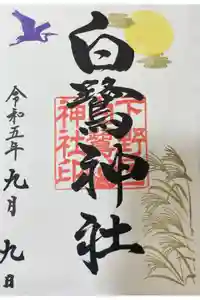 白鷺神社
令和五年九月九日
下野国
神社印